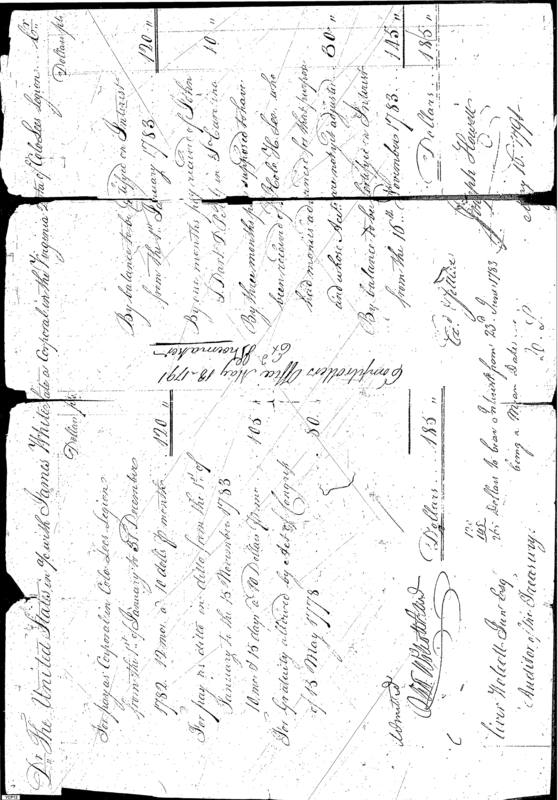 Dr. The United States in a/c with James White late a Corporal in the Virginia Line of Colo Lees Legion Cr.
Dollars pts.
For pay as Corporal in Colo. Lees Legion
from the 1st of January to 31 December
1782. 12 mos. a 10 dolls. p month 120
For pay as ditto in ditto from the 1st. of
January to the 15 November 1783
10 mos & 15 days a 10 Dollars p mo 105
For Gratuity allowed by Act of Congress
of 15 May 1778 80
Dollars 185 "
Dollars pts.
By balance to be on Interest
from the 1st. January 1783 120 "
By one months pay received of John
in So Carolina 10 "
By three months pay supposed to have
been received of Colo H Lee, who
had monies advanced for that purpose
and whose Accts are not yet adjusted 30 "
By balance to be on Interest
from the 16th November 1783 145 "
Dollars 185 "
Comptrollers Office May 13. 1791
Exd. Shoemaker
Admitted
Oliver Wolcott Junr Esqr
Auditor of the Treasury.
120
145
265 Dollars to bear Interest from 23d. June 1783
being a Mean Date
Joseph Howell
May 10. 1791